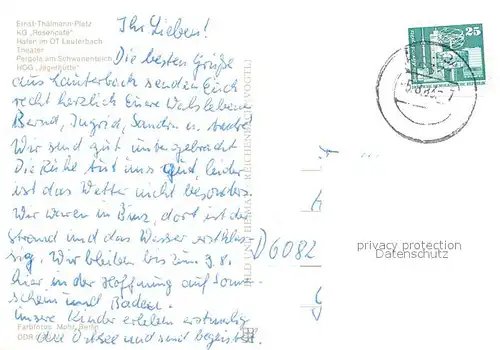 Ernst-Thälmann-Platz
KG „Rosencafé"
Hafen im OT Lauterbach
Theater
Pergola am Schwanenteich
HOG „Jägerhütte"
Ihr Lieben!
Die besten Grüße
aus Lauterbach senden Euch
recht herzlich Eure Walslebener
Bernd, Ingrid, Sandra u.
Wir sind gut untergebracht
Die Ruhe tut uns gut, leider
ist das Wetter nicht besonders.
Wir waren in Binz, dort ist der
Strand und das Wasser erstklas-
sig. Wir bleiben bis zum 9.8.
hier in der Hoffnung auf Sonnen-
schein und Baden.
Unsere Kinder erleben erstmalig
die Ostsee und sind begeistert.
Farbfotos: Mohr, Berlin
DDR
BILD UND HEIMAT REICHENBACH (VOGTL)
25
D 6082
privacy protection
Datenschutz